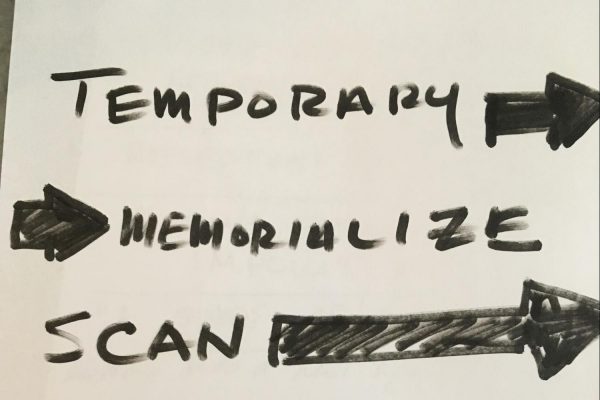 TEMPORARY
MEMORIALIZE
SCAN